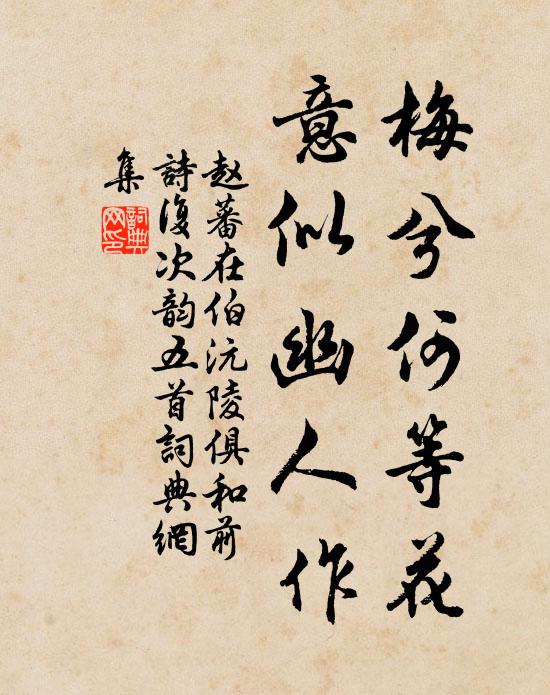 梅兮何等花
意似幽人作
赵蕃在伯沅陵俱和前
詩復次韵五首詞典網
集
詞典
网印